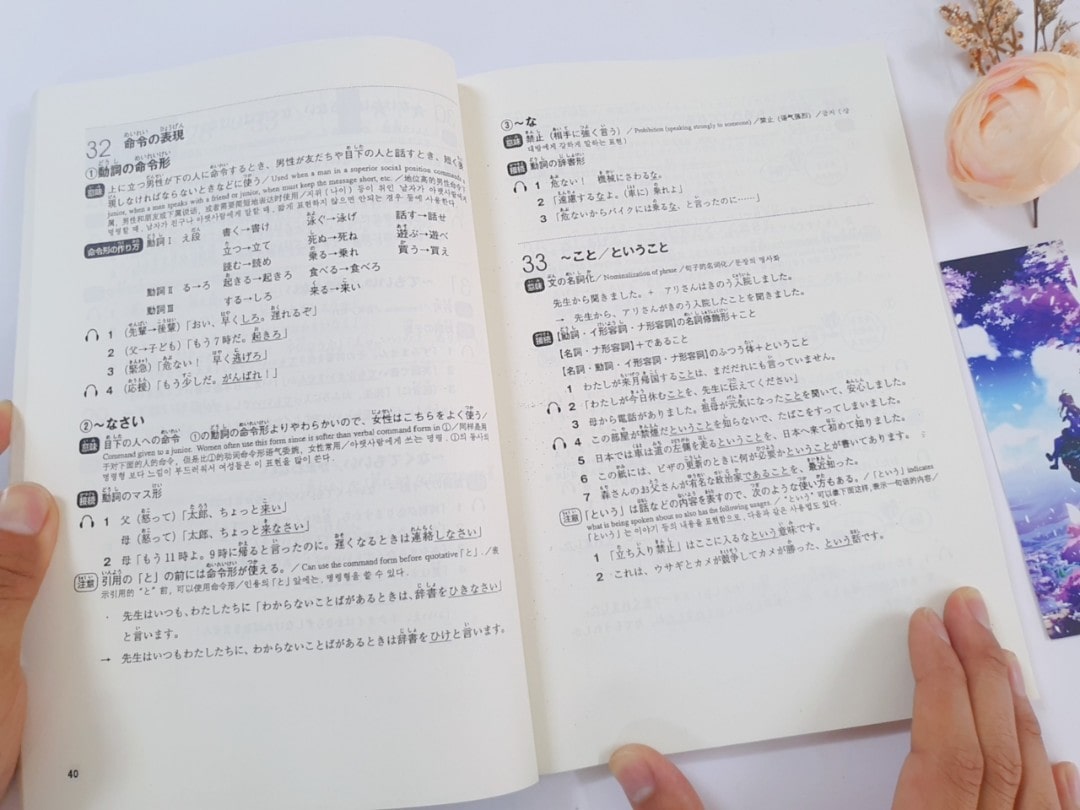 32 命令の表現
①動詞の命令形
意味 上に立つ男性が下の人に命令するとき、男性が友だちや目下の人と話すとき、短く表
現しなければならないときなどに使う/Used when a man in a superior social position commands a
junior, when a man speaks with a friend or junior, when must keep the message short, etc. /地位高的男性命令下
属，男性和朋友或下属说话，或者需要简短地表达时使用/지위(나이) 등이 위인 남자가 아랫사람에게
명령할 때, 남자가 친구나 아랫사람에게 말할 때, 짧게 표현하지 않으면 안되는 경우 등에 사용한다.
命令形の作り方 動詞Ⅰ え段 書く→書け 泳ぐ→泳げ 話す→話せ
立つ→立て 死ぬ→死ね 遊ぶ→遊べ
読む→読め 乗る→乗れ 買う→買え
動詞Ⅱ る→ろ 起きる→起きろ 食べる→食べろ
動詞Ⅲ する→しろ 来る→来い
1 (先輩→後輩)「おい、早くしろ。遅れるぞ」
2 (父→子ども)「もう7時だ。起きろ」
3 (緊急)「危ない! 早く逃げろ」
4 (応援)「もう少しだ。がんばれ!」
②〜なさい
意味 目下の人への命令 ①の動詞の命令形よりやわらかいので、女性はこちらをよく使う/
Command given to a junior. Women often use this form since is softer than verbal command form in ①/同样是用
于对下面的人的命令，但是比①的动词命令形语气委婉，女性常用/아랫사람에게 쓰는 명령. ①의 동사의
명령형 보다 느낌이 부드러워서 여성들은 이 표현을 많이 쓴다.
接続 動詞のマス形
1 父(怒って)「太郎、ちょっと来い」
母(怒って)「太郎、ちょっと来なさい」
2 母「もう11時よ。9時に帰ると言ったのに。遅くなるときは連絡しなさい」
注意 引用の「と」の前には命令形が使える。/Can use the command form before quotative「と」./表
示引用的"と"前，可以使用命令形/인용의「と」앞에는, 명령형을 쓸 수 있다.
・ 先生はいつも、わたしたちに「わからないことばがあるときは、辞書をひきなさい」
と言います。
→ 先生はいつもわたしたちに、わからないことばがあるときは辞書をひけと言います。
40
③〜な
意味 禁止(相手に強く言う)/Prohibition (speaking strongly to someone)/禁止(语气强形)/
상대방에게 강하게 말하는 표현!
接続 動詞の辞書形
1 危ない! 機械にさわるな。
2 「遠慮するなよ。(車に)乗れよ」
3 「危ないからバイクには乗るな、と言ったのに……」
33 〜こと/ということ
意味 文の名詞化/Nominalization of phrase/句子的名词化/문장의 명사화
先生から聞きました。+ アリさんはきのう入院しました。
→ 先生から、アリさんがきのう入院したことを聞きました。
接続 【動詞・イ形容詞・ナ形容詞】の名詞修飾形+こと
【名詞・ナ形容詞】+であること
【名詞・動詞・イ形容詞・ナ形容詞】のふつう体+ということ
1 わたしが来月帰国することは、まだだれにも言っていません。
2 「わたしが今日休むことを、先生に伝えてください」
3 母から電話がありました。祖母が元気になったことを聞いて、安心しました。
4 この部屋が禁煙だということを知らないで、たばこをすってしまいました。
5 日本では車は道の左側を走るということを、日本へ来て初めて知りました。
6 この紙には、ビザの更新のときに何が必要かということが書いてあります。
7 森さんのお父さんが有名な政治家であることを、最近知った。
注意 「という」は話などの内容を表すので、次のような使い方もある。/「という」indicates
what is being spoken about so also has the following usages. /"という"可以像下面这样,表示一句话的内容/
「という」는 이야기 등의 내용을 표현함으로, 다음과 같은 사용법도 있다.
1 「立ち入り禁止」はここに入るなという意味です。
2 これは、ウサギとカメが競争してカメが勝った、という話です。